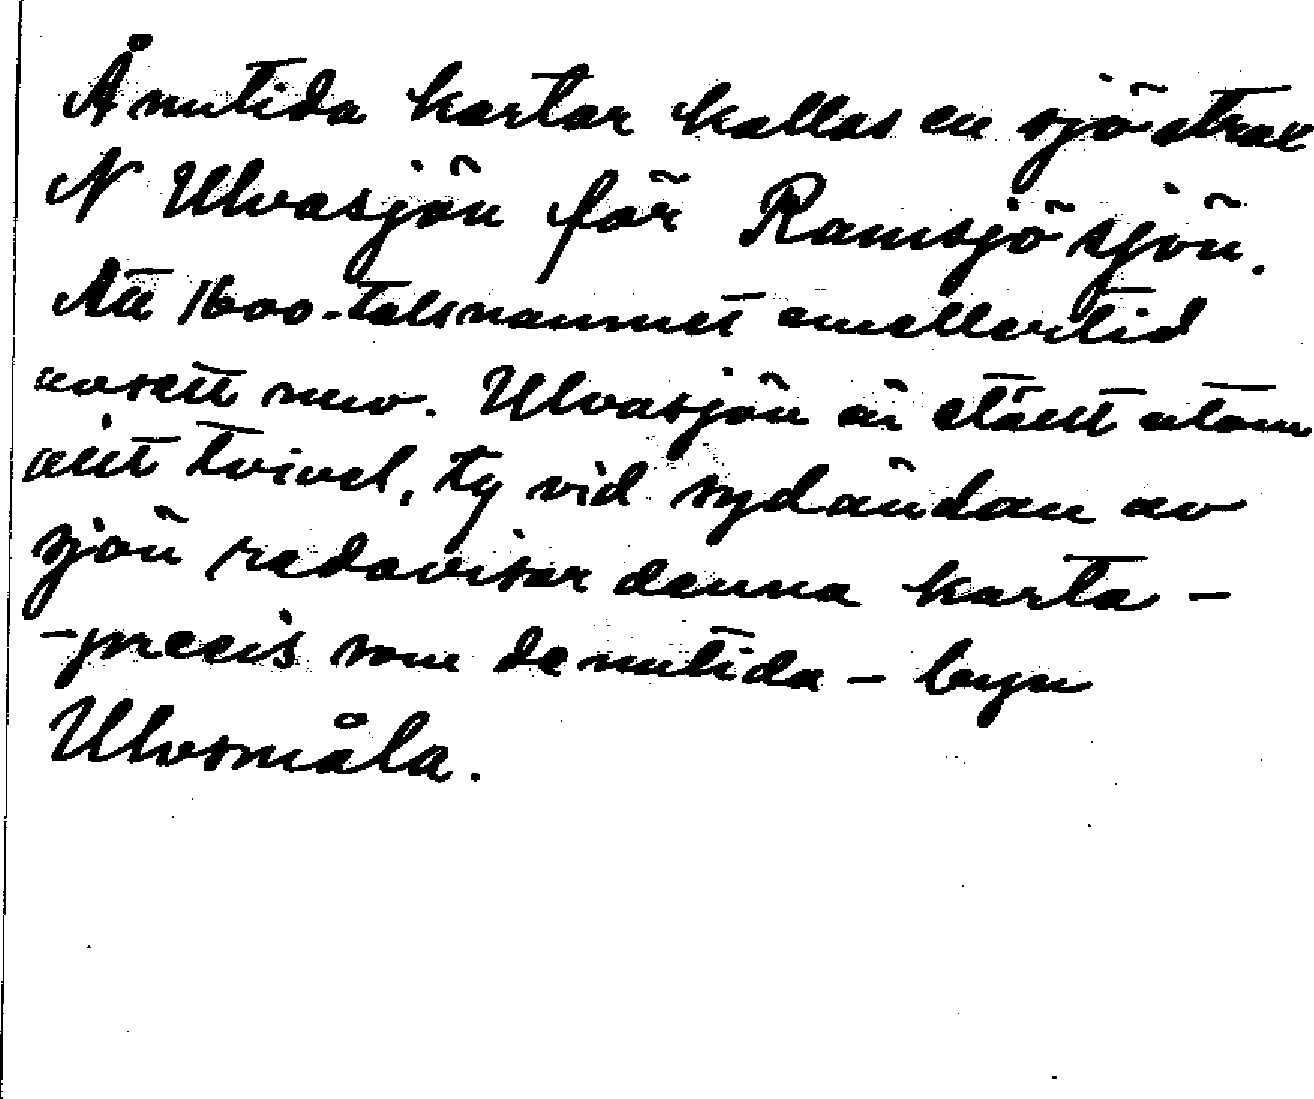 Å nutida kartor kallas en sjö strax
N Ulvasjön för Ramsjösjön.
Att 1600-talsnamnet emellertid
avsett nuv. Ulvasjön är ställt utom
allt tvivel, ty vid sydändan av
sjön redovisar denna karta -
- precis som de nutida - byn
Ulvsmåla.